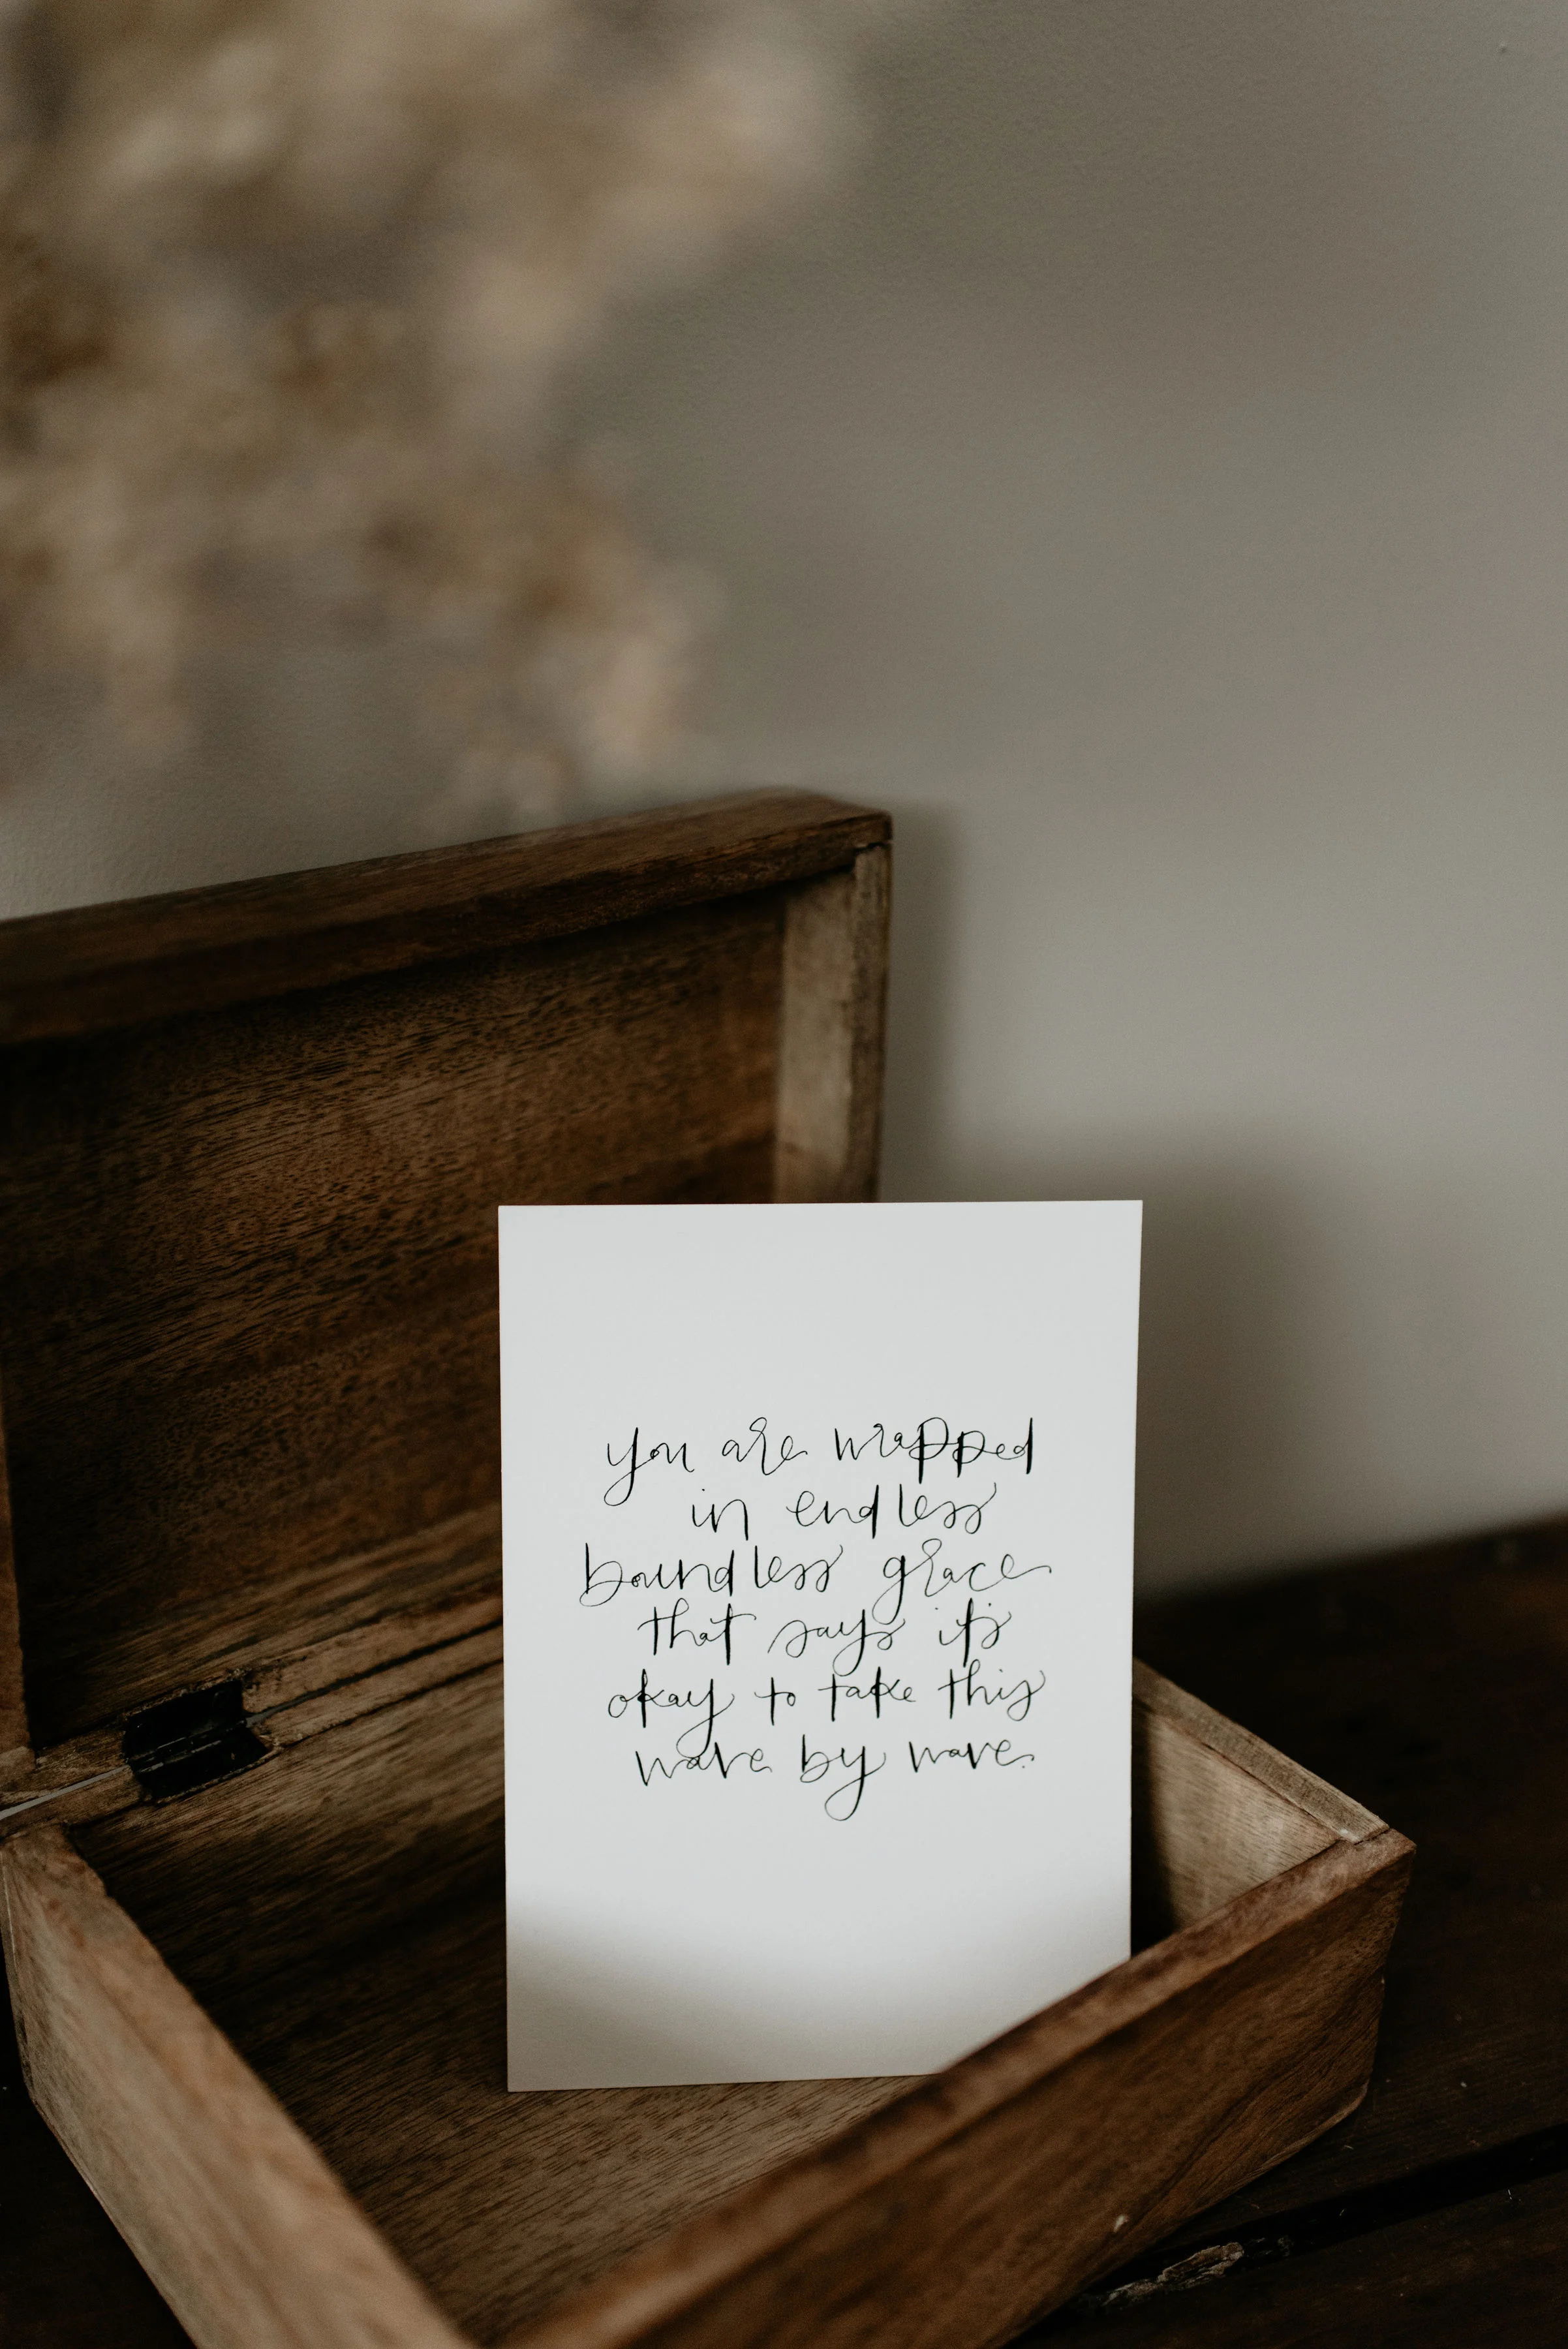 you are wrapped
in endless
boundless grace
that says it's
okay to take this
wave by wave.